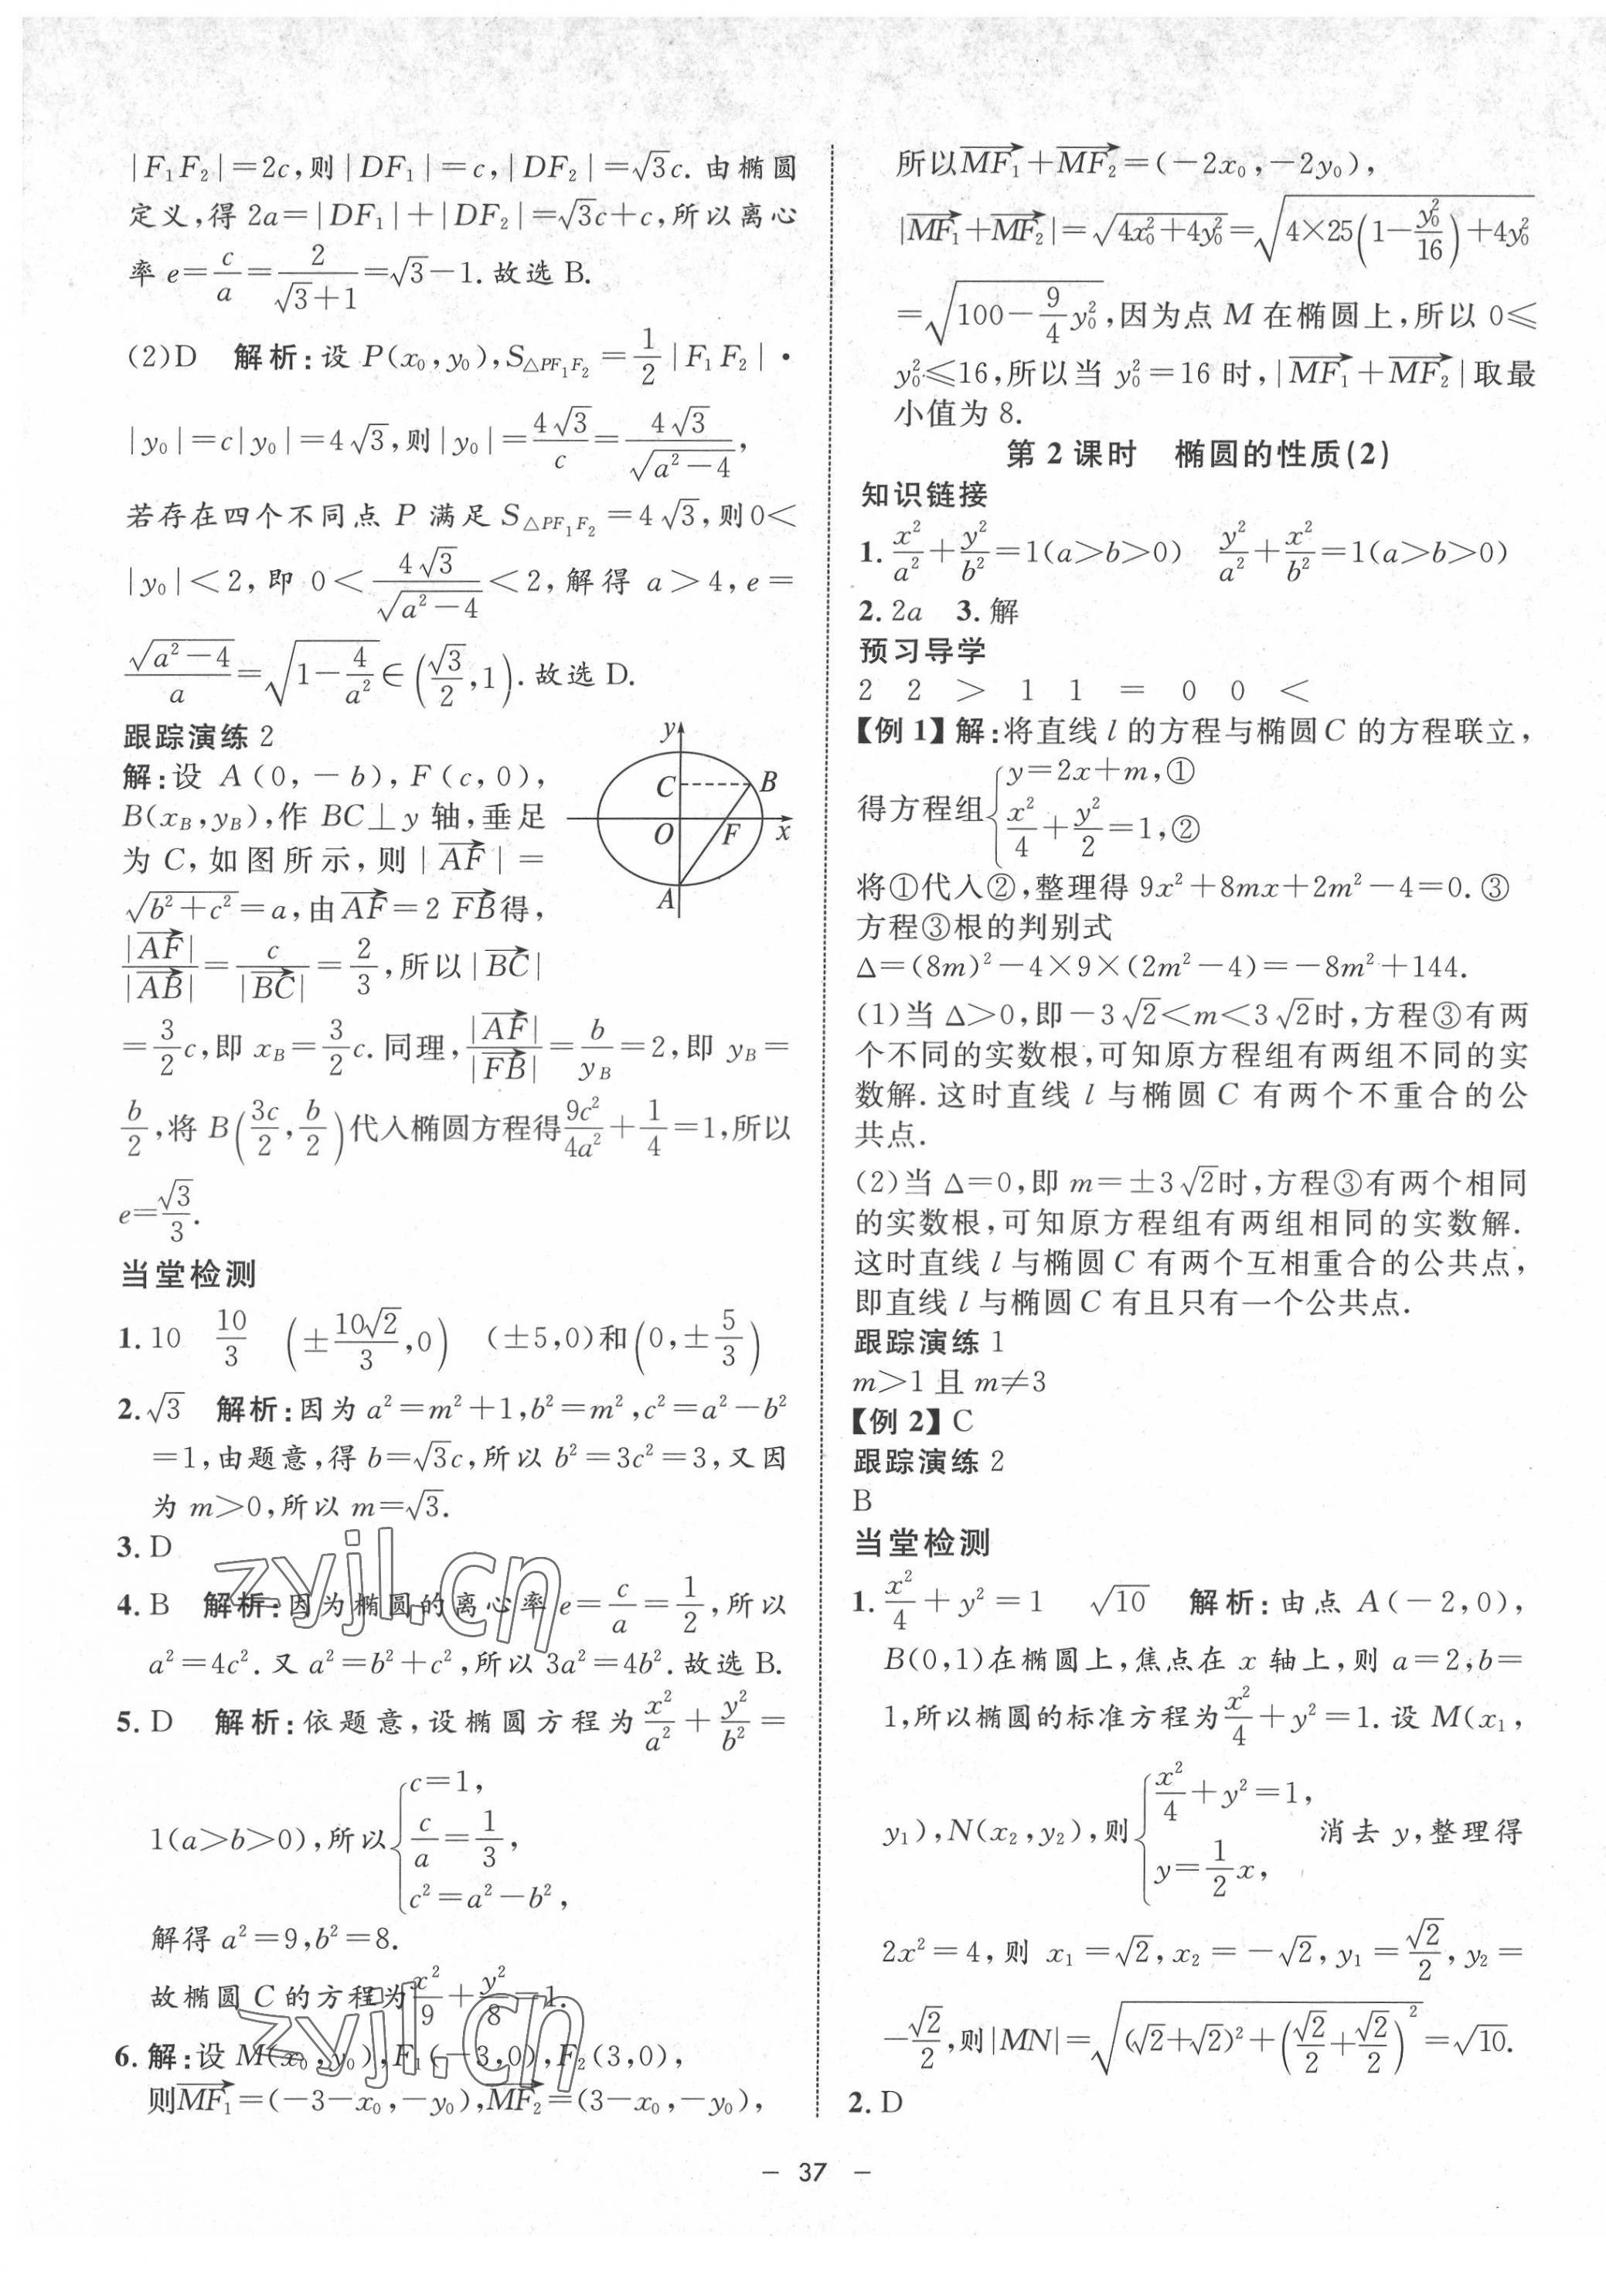 |F₁F₂|=2c,则|DF₁|=c,|DF₂|=√3c.由椭圆
定义,得 2a=|DF₁|+|DF₂|=√3c+c,所以离心
率 e=c/a=2/(√3+1)=√3-1.故选 B.
(2)D 解析:设 P(x₀,y₀),S△PF₁F₂=1/2|F₁F₂|·
|y₀|=c|y₀|=4√3,则|y₀|=4√3/c=4√3/√(a²-4),
若存在四个不同点 P 满足 S△PF₁F₂=4√3,则0<
|y₀|<2,即 0<4√3/√(a²-4)<2,解得 a>4,e=
√(a²-4)/a=√(1-4/a²)∈(√3/2,1).故选 D.
跟踪演练 2
解:设 A(0,-b),F(c,0),
B(x_B,y_B),作 BC⊥y 轴,垂足
为 C,如图所示,则|AF→|=
√(b²+c²)=a,由AF→=2 FB→得,
|AF→|/|AB→|=c/|BC→|=2/3,所以|BC→|
=3/2c,即 x_B=3/2c.同理,|AF→|/|FB→|=b/y_B=2,即 y_B=
b/2,将 B(3c/2,b/2)代入椭圆方程得9c²/4a²+1/4=1,所以
e=√3/3.
y
C
B
O
F
x
A
当堂检测
1. 10 10/3 (±10√2/3,0) (±5,0)和(0,±5/3)
2. √3 解析:因为 a²=m²+1,b²=m²,c²=a²-b²
=1,由题意,得 b=√3c,所以 b²=3c²=3,又因
为 m>0,所以 m=√3.
3. D
4. B 解析:因为椭圆的离心率 e=c/a=1/2,所以
a²=4c².又 a²=b²+c²,所以 3a²=4b².故选 B.
5. D 解析:依题意,设椭圆方程为x²/a²+y²/b²=
1(a>b>0),所以{c=1,
c/a=1/3,
c²=a²-b²,
解得 a²=9,b²=8.
故椭圆 C 的方程为x²/9+y²/8=1.
6. 解:设 M(x₀,y₀),F₁(-3,0),F₂(3,0),
则MF₁→=(-3-x₀,-y₀),MF₂→=(3-x₀,-y₀),
zyjl.cn
zyjl.cn
所以MF₁→+MF₂→=(-2x₀,-2y₀),
|MF₁→+MF₂→|=√(4x₀²+4y₀²)=√(4×25(1-y₀²/16)+4y₀²)
=√(100-9/4y₀²),因为点 M 在椭圆上,所以 0≤
y₀²≤16,所以当 y₀²=16 时,|MF₁→+MF₂→|取最
小值为 8.
第 2 课时 椭圆的性质(2)
知识链接
1. x²/a²+y²/b²=1(a>b>0) y²/a²+x²/b²=1(a>b>0)
2. 2a 3. 解
预习导学
2 2 > 1 1 = 0 0 <
【例 1】解:将直线 l 的方程与椭圆 C 的方程联立,
得方程组{y=2x+m,①
x²/4+y²/2=1,②
将①代入②,整理得 9x²+8mx+2m²-4=0.③
方程③根的判别式
Δ=(8m)²-4×9×(2m²-4)=-8m²+144.
(1)当 Δ>0,即-3√2<m<3√2时,方程③有两
个不同的实数根,可知原方程组有两组不同的实
数解.这时直线 l 与椭圆 C 有两个不重合的公
共点.
(2)当 Δ=0,即 m=±3√2时,方程③有两个相同
的实数根,可知原方程组有两组相同的实数解.
这时直线 l 与椭圆 C 有两个互相重合的公共点,
即直线 l 与椭圆 C 有且只有一个公共点.
跟踪演练 1
m>1 且 m≠3
【例 2】C
跟踪演练 2
B
当堂检测
1. x²/4+y²=1 √10 解析:由点 A(-2,0),
B(0,1)在椭圆上,焦点在 x 轴上,则 a=2,b=
1,所以椭圆的标准方程为x²/4+y²=1.设 M(x₁,
y₁),N(x₂,y₂),则{x²/4+y²=1,
y=1/2x, 消去 y,整理得
2x²=4,则 x₁=√2,x₂=-√2,y₁=√2/2,y₂=
-√2/2,则|MN|=√((√2+√2)²+(√2/2+√2/2)²)=√10.
2. D
— 37 —